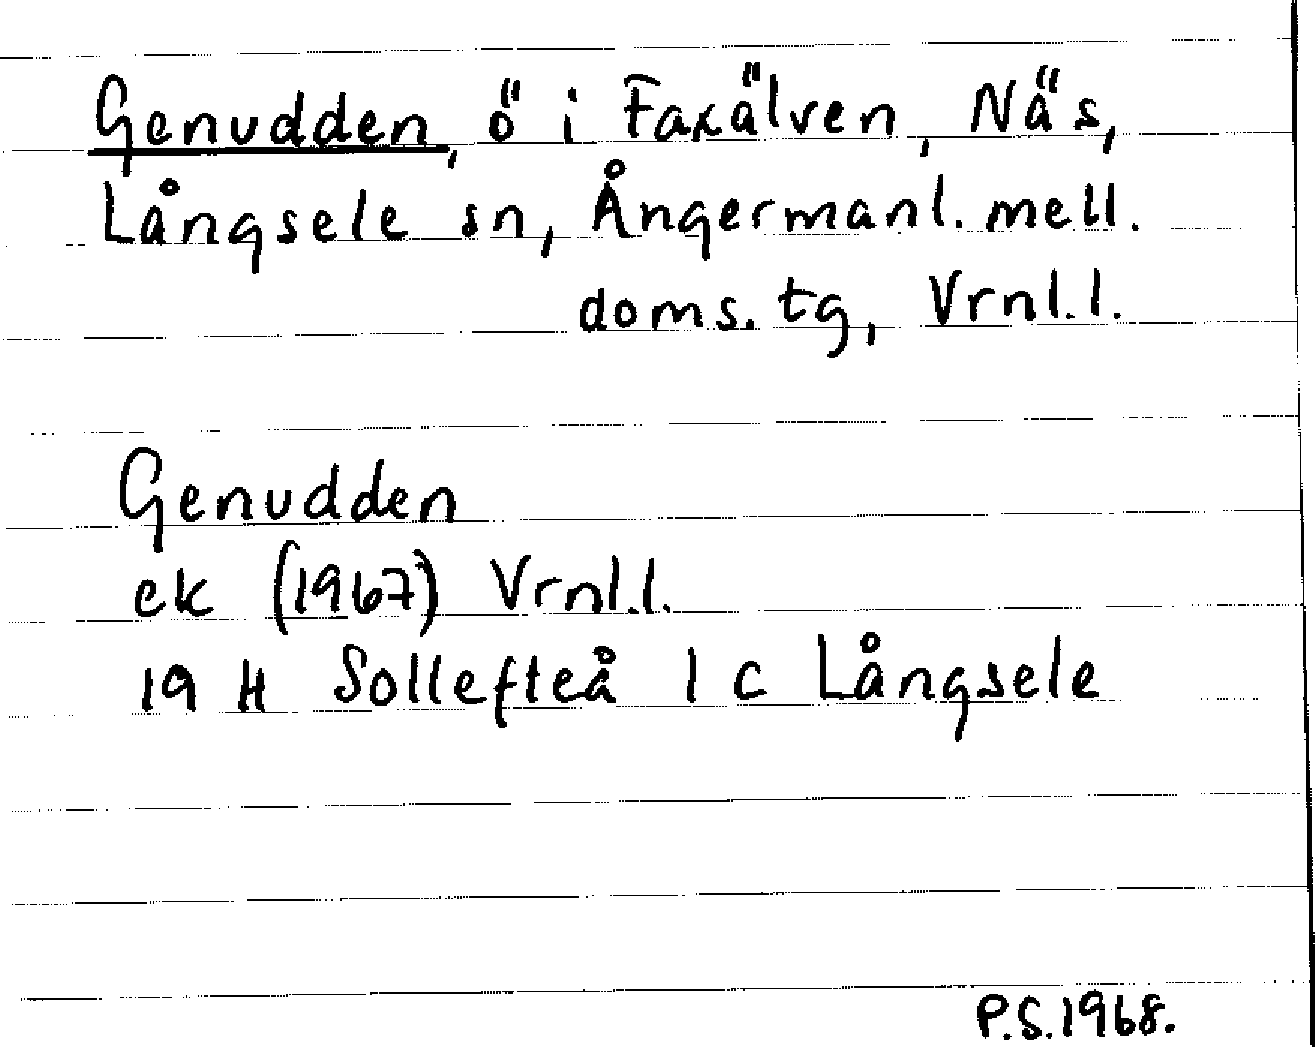 Genudden, ö i Faxälven, Näs,
Långsele sn, Ångermanl. mell.
doms. tg, Vrnl.l.
Genudden
ek (1967) Vrnl.l.
19 H Sollefteå 1 c Långsele
P.S.1968.